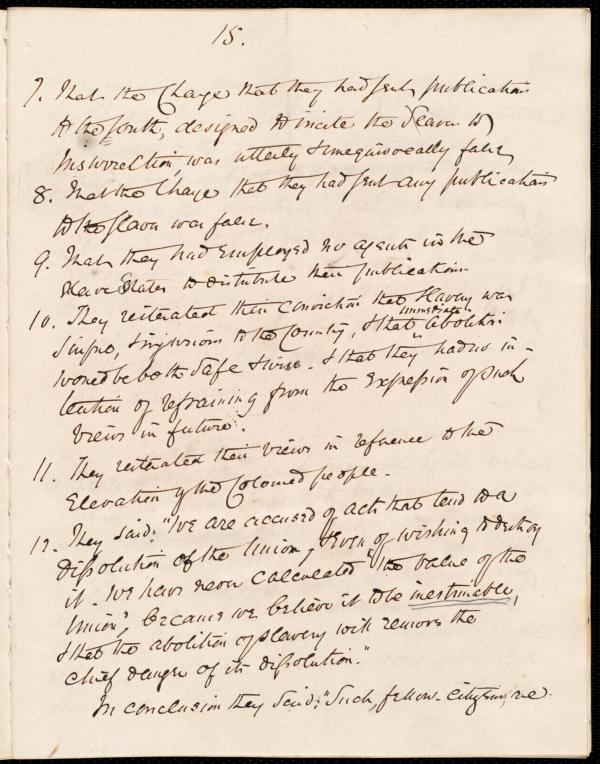 15.
7. That the Charge that they had sent publications
to the South, designed to incite the Slaves to
Insurrection, was utterly & unequivocally false,
8. That the Charge that they had sent any publications
to the slaves was false.
9. That they had employed no agents in the
Slave States to distribute their publications
10. They reiterated their conviction that Slavery was
sinful, & injurious to the Country, & that immediate aboliti
would be both safe & wise. & that they had no in-
tention of refraining from the Expression of such
views in future.
11. They reiterated their views in reference to the
Elevation of the Colored people.
12. They said: "We are accused of acts that tend to a
Dissolution of the Union, & even of wishing to destroy
it. We have never calculated "the value of the
Union", because we believe it to be inestimable,
& that the abolition of slavery will remove the
chief danger of its dissolution."
In conclusion they said; "Such, fellow-citizens, are